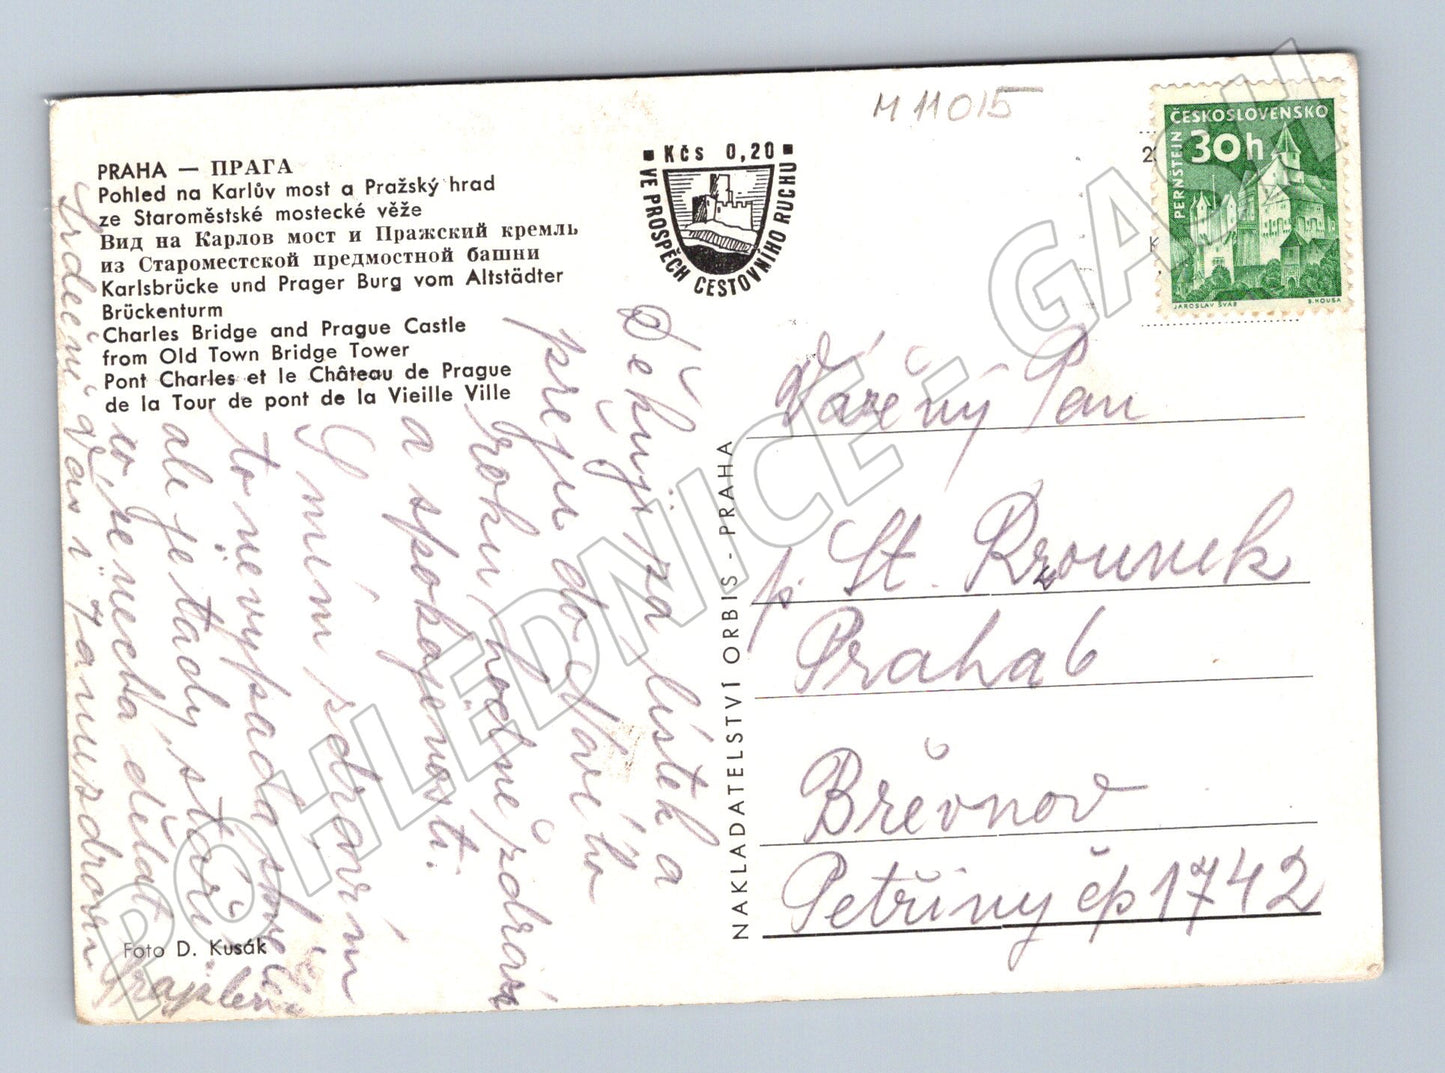 M 11015
PRAHA — ПРАГА
Pohled na Karlův most a Pražský hrad
ze Staroměstské mostecké věže
Вид на Карлов мост и Пражский кремль
из Староместской предмостной башни
Karlsbrücke und Prager Burg vom Altstädter
Brückenturm
Charles Bridge and Prague Castle
from Old Town Bridge Tower
Pont Charles et le Château de Prague
de la Tour de pont de la Vieille Ville
Kčs 0,20
VE PROSPĚCH CESTOVNÍHO RUCHU
ČESKOSLOVENSKO
30h
PERNŠTEJN
JAROSLAV ŠVÁB
B. HOUSA
Děkuji za lístek a
přeju do Nového
roku, hodně zdraví
a spokojenosti.
S mím zdravím
to nevypadá
ale je tady stáří
co se nechá dělat
Srdečně Vás
zdraví
NAKLADATELSTVÍ ORBIS - PRAHA
Vážený Pan
p St. Rzounek
Praha 6
Břevnov
Petřiny čp 1742
Foto D. Kusák
POHLEDNICE - GASH